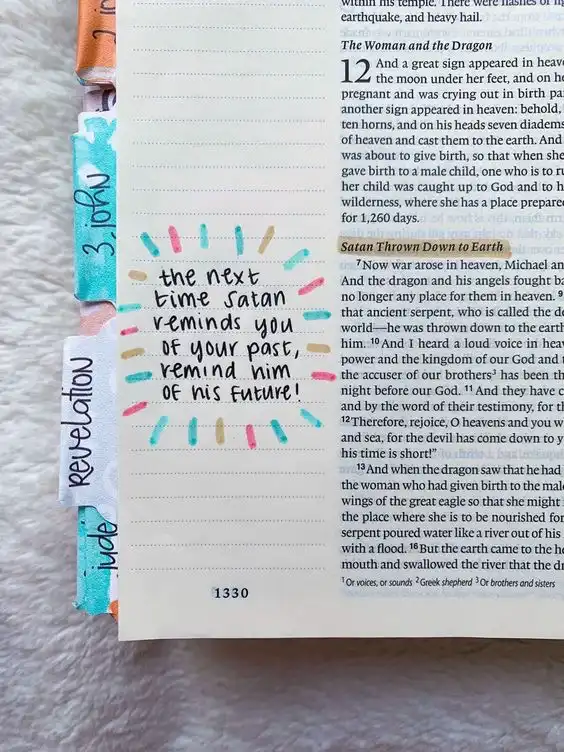 within his temple. There were flashes of
earthquake, and heavy hail.
The Woman and the Dragon
12 And a great sign appeared in
the moon under her feet, and on
pregnant and was crying out in birth
another sign appeared in heaven: behold,
ten horns, and on his heads seven diadems
of heaven and cast them to the earth. And
was about to give birth, so that when she
gave birth to a male child, one who is to
her child was caught up to God and to
wilderness, where she has a place
for 1,260 days.
Satan Thrown Down to Earth
7Now war arose in heaven, Michael
And the dragon and his angels fought
no longer any place for them in heaven. 9
that ancient serpent, who is called the
world—he was thrown down to the
him. 10And I heard a loud voice in
power and the kingdom of our God and
the accuser of our brothers3 has been
night before our God. 11And they have
and by the word of their testimony, for
12Therefore, rejoice, O heavens and you
and sea, for the devil has come down to
his time is short!"
13And when the dragon saw that he had
the woman who had given birth to the
wings of the great eagle so that she might
the place where she is to be nourished for
serpent poured water like a river out of his
with a flood. 16But the earth came to the
mouth and swallowed the river that the
1Or voices, or sounds 2Greek shepherd 3Or brothers and sisters
the next
time satan
reminds you
of your past,
remind him
of his future!
3. john
Revelation
jude
1330